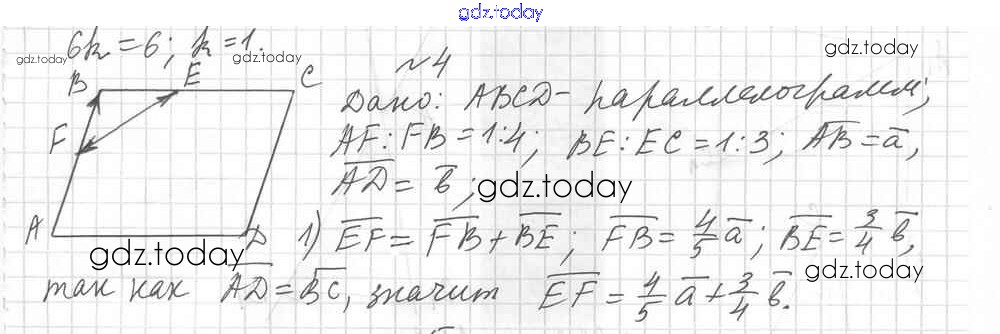 gdz.today
6k = 6; k = 1.
gdz.today
gdz.today
gdz.today
B E C
F
A D
№4
Дано: ABCD – параллелограмм;
AF : FB = 1:4; BE : EC = 1:3; AB = a,
AD = b;
gdz.today
1) EF = FB + BE; FB = 4/5 a; BE = 3/4 b,
gdz.today
gdz.today
так как AD = BC, значит EF = 4/5 a + 3/4 b.